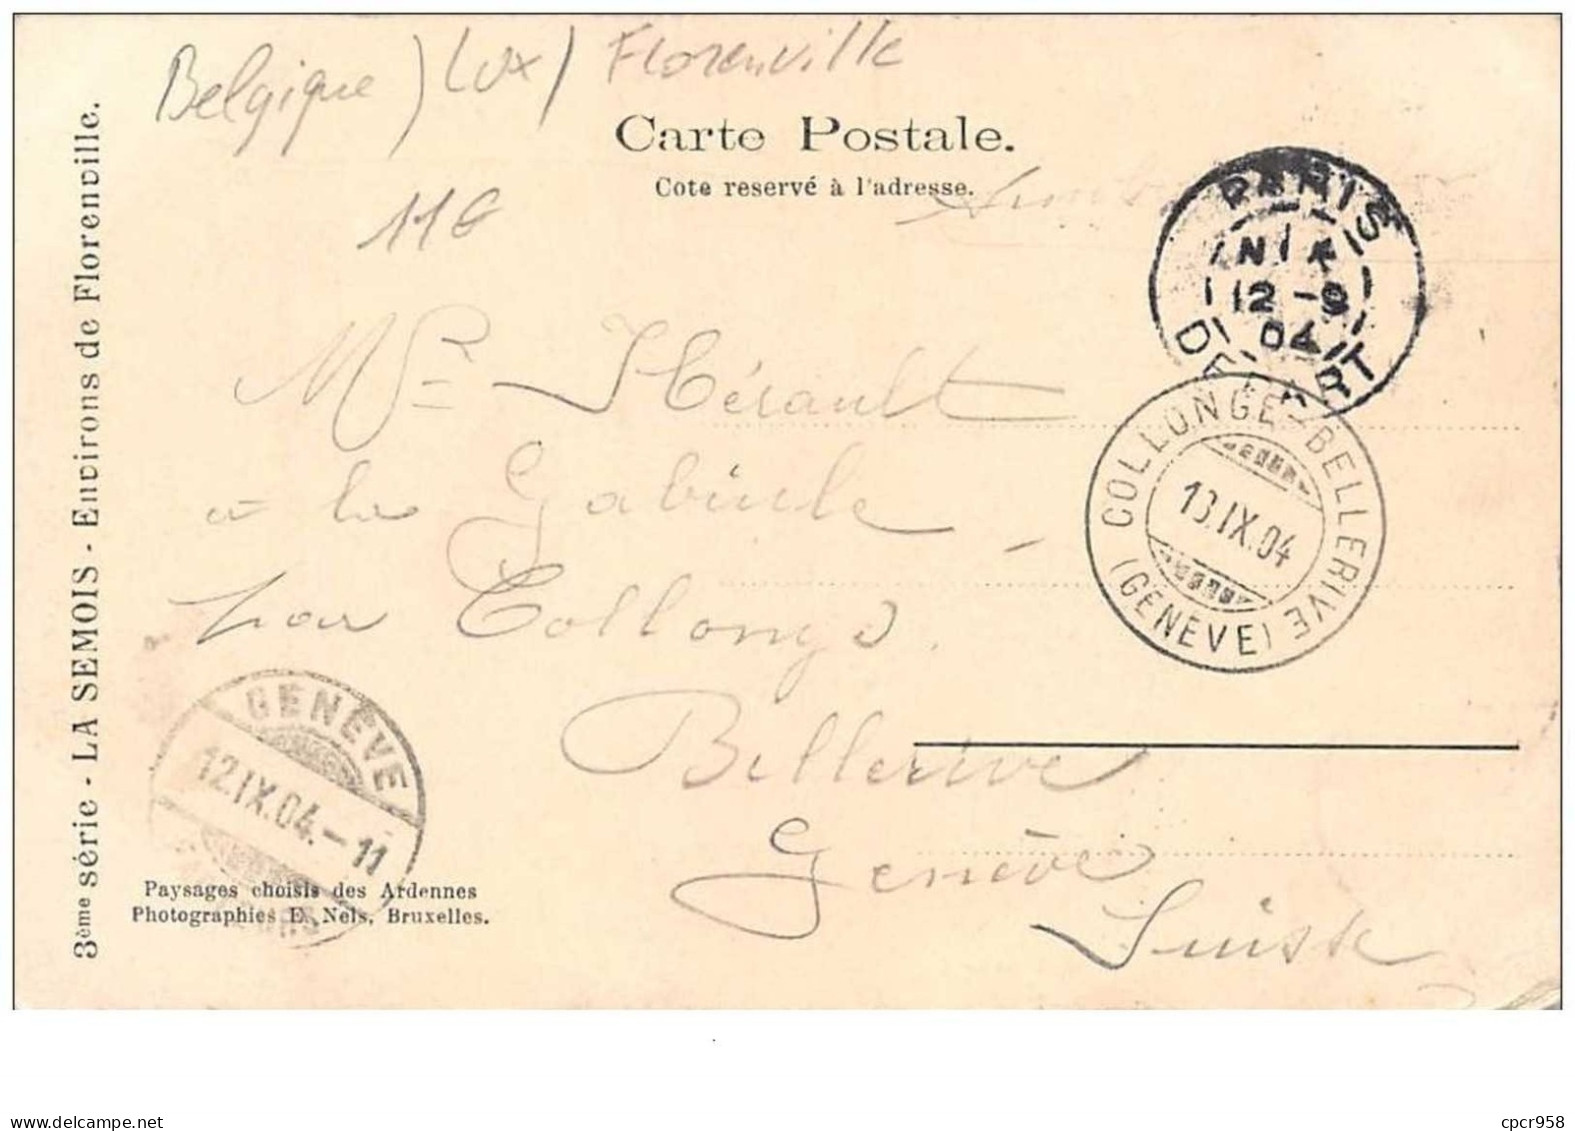 Belgique) Lux/ Florenville
Carte Postale.
Cote reservé à l'adresse.
116
PARIS
12 -9
04
DEPART
Mr Hérault
à la Gabiule
par Collonge
Bellerive
Genève
Suisse
COLLONGE-BELLERIVE
13.IX.04
(GENÈVE)
GENÈVE
12.IX.04.-11
Paysages choisis des Ardennes
Photographies E. Nels, Bruxelles.
3ème série - LA SEMOIS - Environs de Florenville.
www.delcampe.net
cpcr958